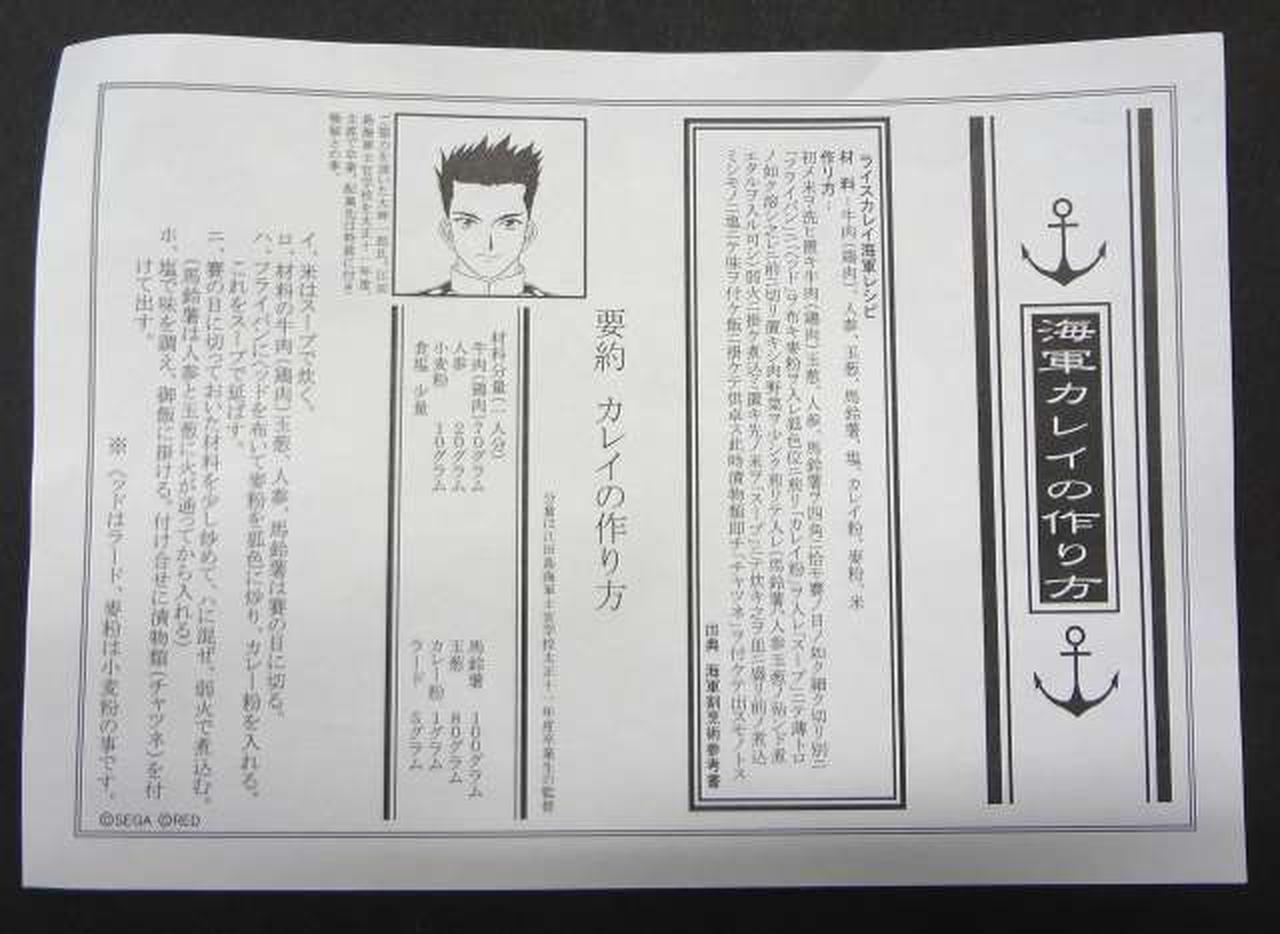 海軍カレイの作り方
ライスカレイ海軍レシピ
材料…牛肉(鶏肉)、人参、玉葱、馬鈴薯、塩、カレイ粉、麦粉、米
作り方…
初メ米ヲ洗ヒ置キ牛肉(鶏肉)玉葱、人参、馬鈴薯ヲ四角ニ恰モ賽ノ目ノ如ク細ク切リ別ニ
「フライパン」ニ「ヘッド」ヲ布キ麦粉ヲ入レ狐色位ニ煎リ「カレイ粉」ヲ入レ「スープ」ニテ薄トロ
ノ如ク溶シセシニ前ニ切リ置キシ肉野菜ヲ少シク煎リテ入レ(馬鈴薯ハ人参玉葱ノ殆ンド煮
エタルヲ入ル可シ)弱火ニ掛ケ煮込ミ置キ先ノ米ヲ「スープ」ニテ炊キ之ヲ皿ニ盛リ前ノ煮込
ミシモノニ塩ニテ味ヲ付ケ飯ニ掛ケテ供卓ス此時漬物類即チ「チャツネ」ヲ付ケテ出スモノトス
出典 海軍割烹術参考書
要約 カレイの作り方
分量は江田島海軍士官学校大正十一年度卒業生の監督
材料分量(一人分)
牛肉(鶏肉)70グラム 馬鈴薯 100グラム
人参 20グラム 玉葱 80グラム
小麦粉 10グラム カレー粉 1グラム
食塩 少量 ラード 5グラム
イ、米はスープで炊く。
ロ、材料の牛肉(鶏肉)玉葱、人参、馬鈴薯は賽の目に切る。
ハ、フライパンにヘッドを布いて麦粉を狐色に炒り、カレー粉を入れる。
これをスープで延ばす。
ニ、賽の目に切っておいた材料を少し炒めて、ハに混ぜ、弱火で煮込む。
(馬鈴薯は人参と玉葱に火が通ってから入れる)
ホ、塩で味を調え、御飯に掛ける。付け合せに漬物類(チャツネ)を付
けて出す。
※ ヘッドはラード、麦粉は小麦粉の事です。
©SEGA ©RED